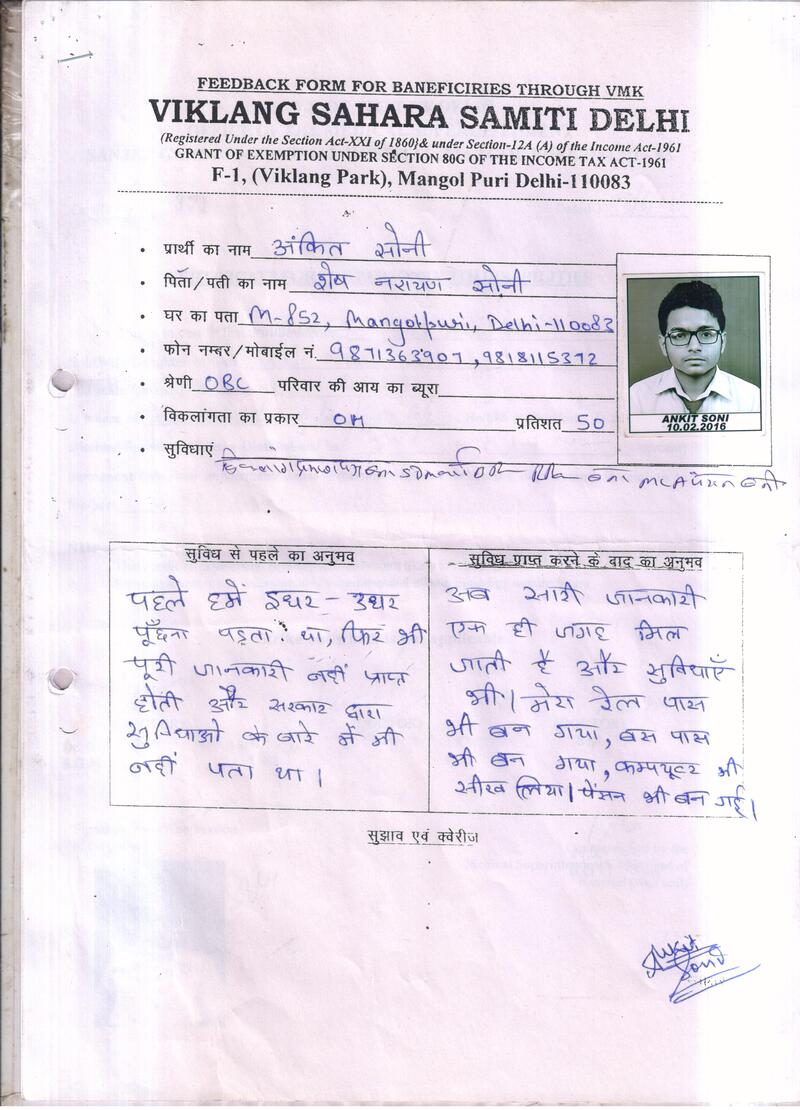 FEEDBACK FORM FOR BANEFICIRIES THROUGH VMK
VIKLANG SAHARA SAMITI DELHI
(Registered Under the Section Act-XXI of 1860}& under Section-12A (A) of the Income Act-1961
GRANT OF EXEMPTION UNDER SECTION 80G OF THE INCOME TAX ACT-1961
F-1, (Viklang Park), Mangol Puri Delhi-110083
• प्रार्थी का नाम अंकित सोनी
• पिता/पती का नाम शेष नरायण सोनी
• घर का पता M-852, Mangolpuri, Delhi-110083
• फोन नम्बर/मोबाईल नं. 9871363907, 9818115372
• श्रेणी OBC परिवार की आय का ब्यूरा
• विकलांगता का प्रकार OH प्रतिशत 50
• सुविधाएं
ANKIT SONI
10.02.2016
सुविध से पहले का अनुभव
पहले हमें इधर-उधर
पूँछना पड़ता था, फिर भी
पूरी जानकारी नहीं प्राप्त
होती और सरकार द्वारा
सुविधाओ के बारे में भी
नहीं पता था।
सुविध प्राप्त करने के बाद का अनुभव
अब सारी जानकारी
एक ही जगह मिल
जाती है और सुविधाएँ
भी। मेरा रेल पास
भी बन गया, बस पास
भी बन गया, कम्पयूटर भी
सीख लिया। पेंसन भी बन गई।
सुझाव एवं क्वेरीज
Ankit
Soni